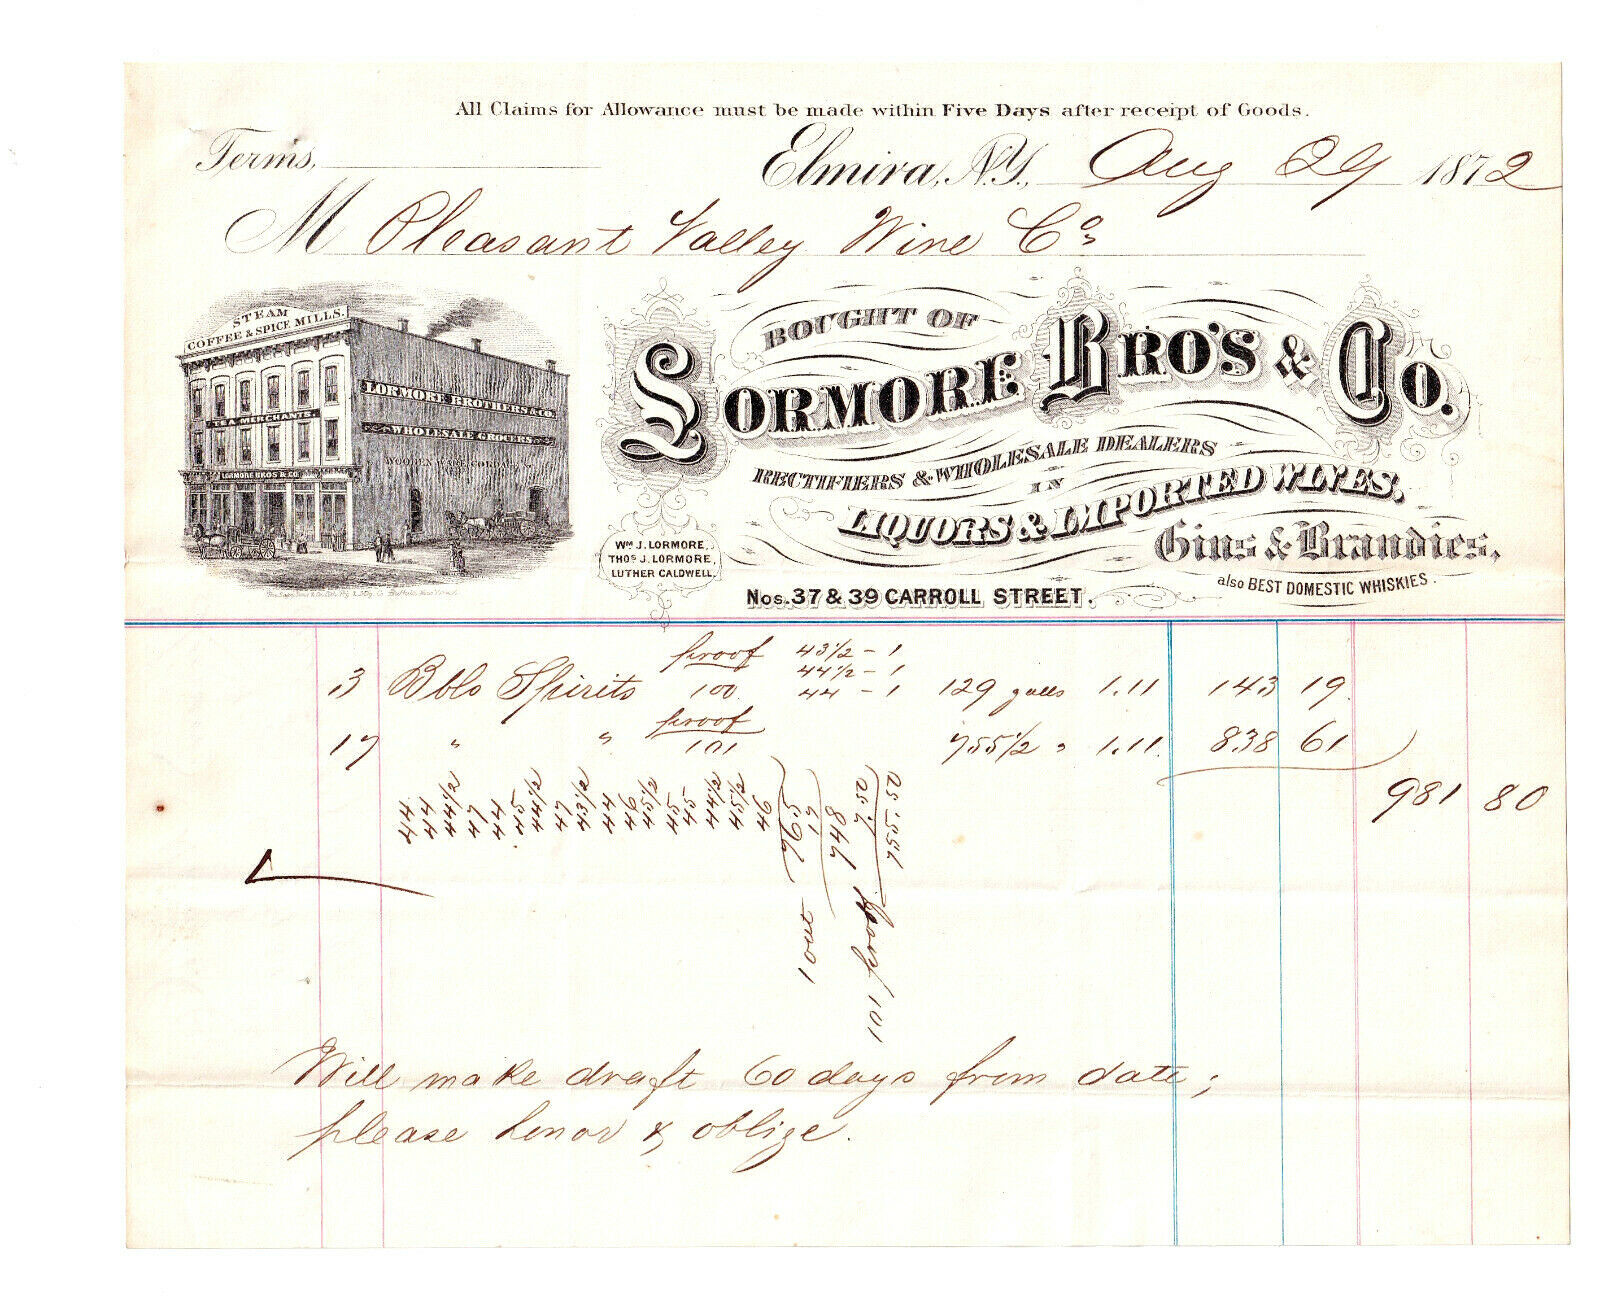 All Claims for Allowance must be made within Five Days after receipt of Goods.
Terms,
Elmira, N.Y., Aug 29 1872
M Pleasant Valley Wine Co,
STEAM
COFFEE & SPICE MILLS.
TEA MERCHANTS.
LORMORE BROS & CO.
LORMORE BROTHERS & CO.
WHOLESALE GROCERS
BOUGHT OF
LORMORE BRO'S & CO.
RECTIFIERS & WHOLESALE DEALERS
IN
LIQUORS & IMPORTED WINES,
Gins & Brandies,
also BEST DOMESTIC WHISKIES.
WM J. LORMORE,
THOS J. LORMORE,
LUTHER CALDWELL.
Nos. 37 & 39 CARROLL STREET.
3 Bbls Spirits proof 100. 43½ - 1 44½ - 1 44 - 1 129 galls 1.11 143 19
17 " " proof 101 755½ " 1.11 838 61
981 80
44
44
44½
47
44
45
44½
47
43½
44
46
45½
45
45
44½
45½
46
765½ 1 out
25 755½
Proof 101
Will make draft 60 days from date;
please honor & oblige.